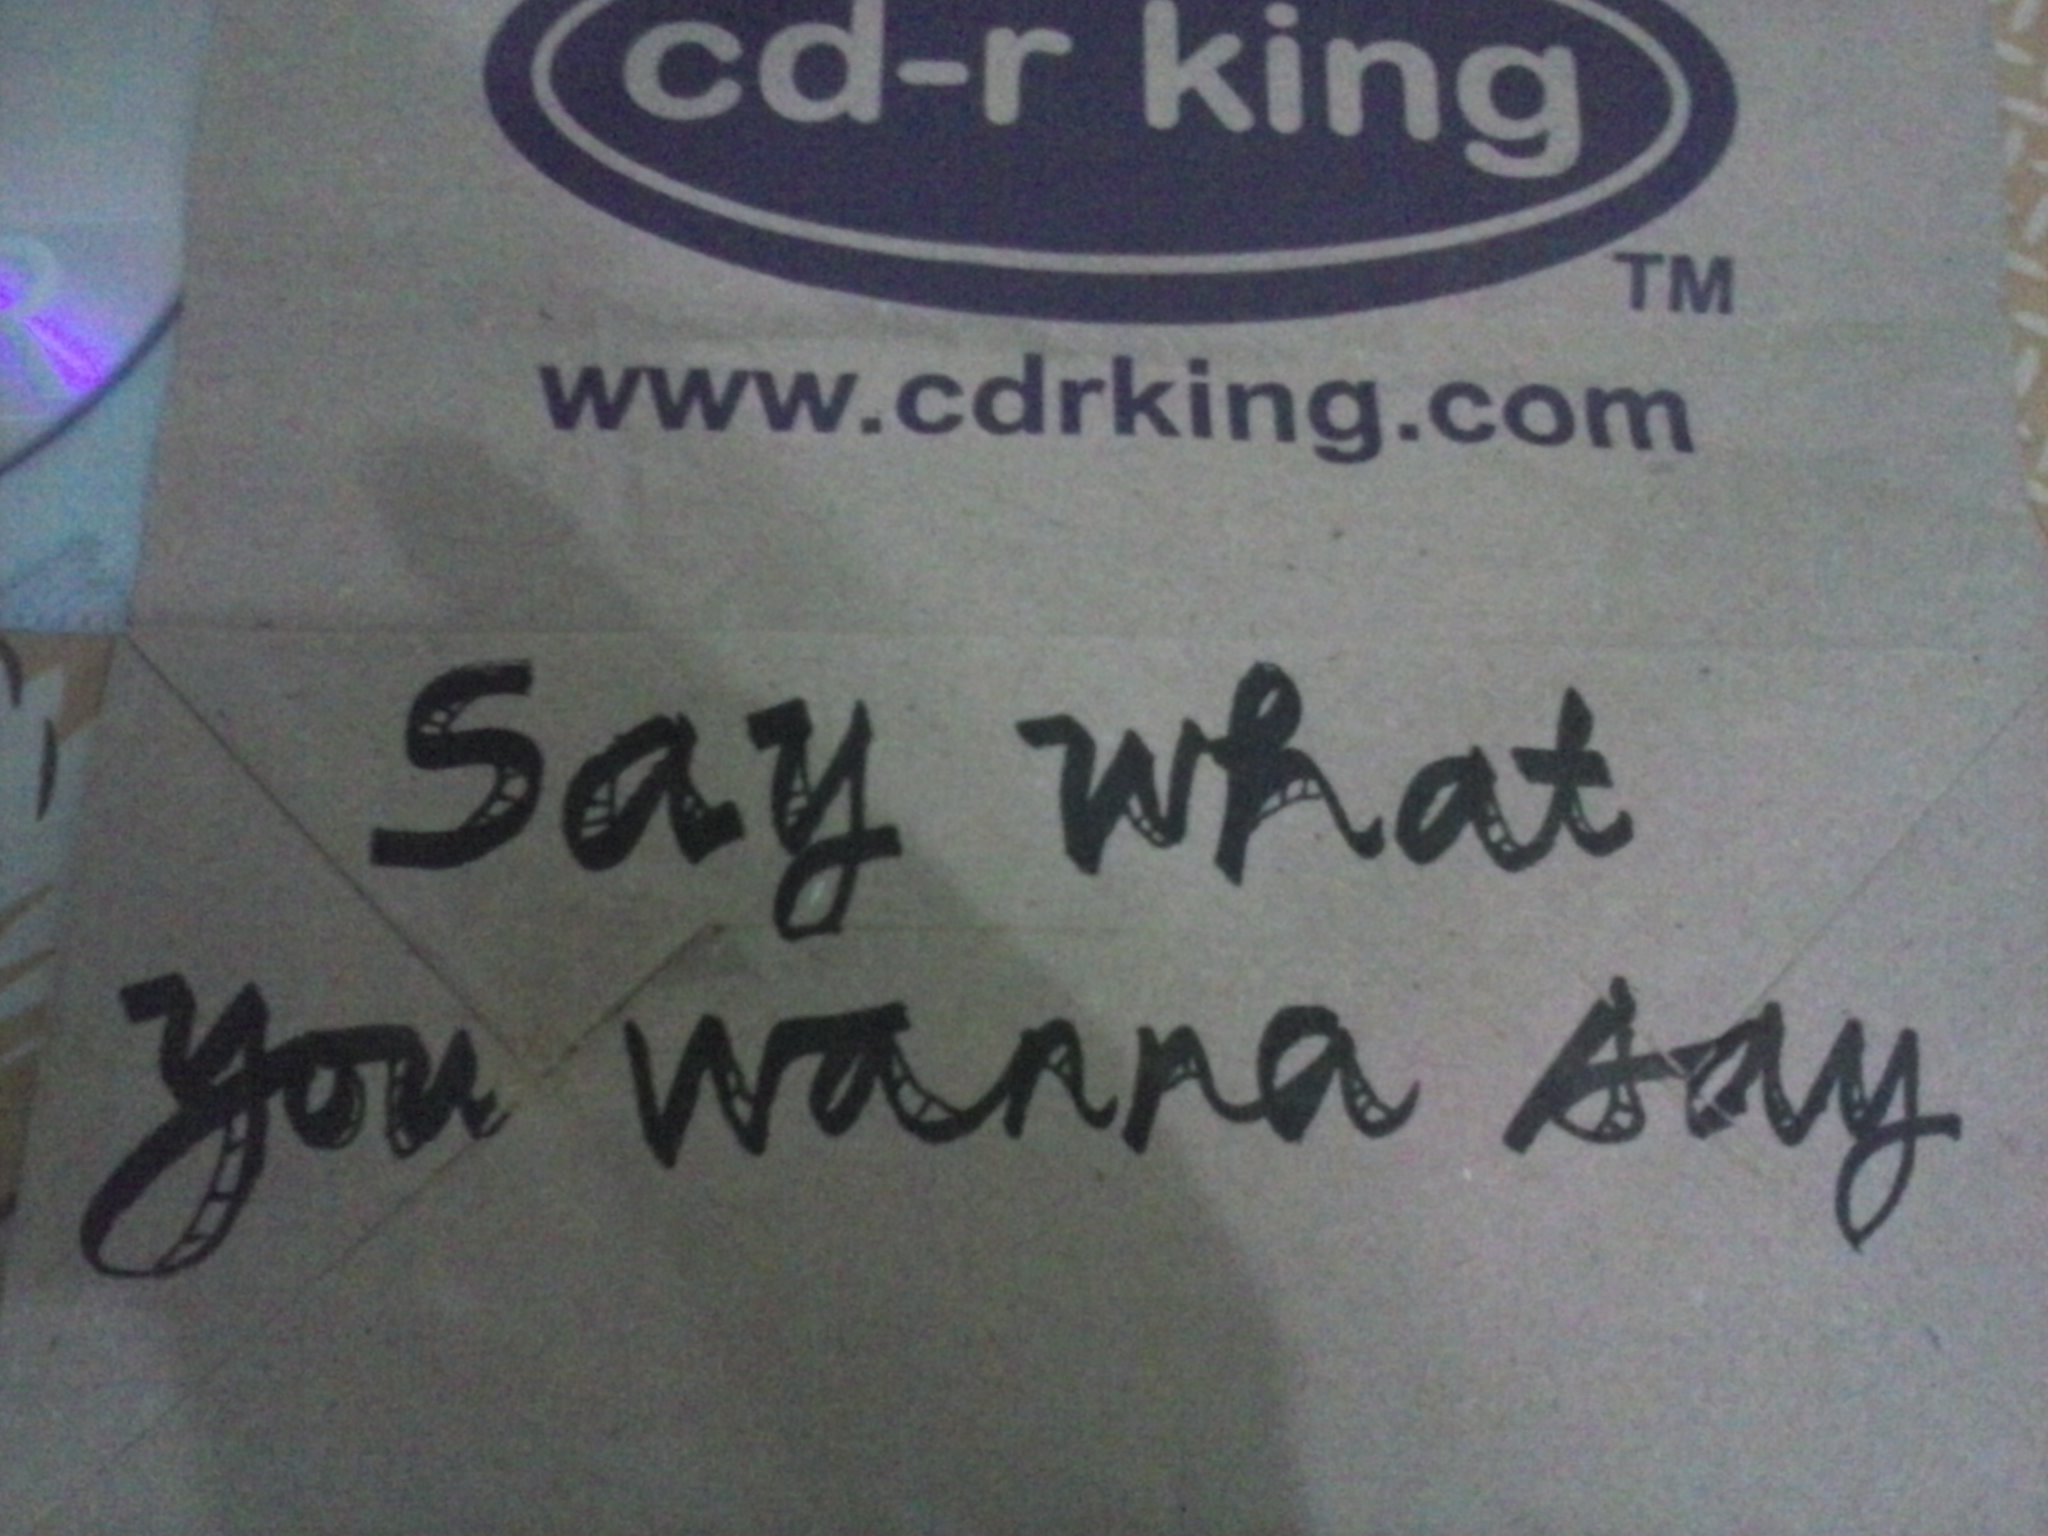 cd-r king
TM
www.cdrking.com
Say what
you wanna say